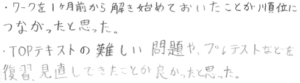 ・ワークを1ヶ月前から解き始めておいたことが順位に
つながったと思った。
・TOPテキストの難しい問題や、プレテストなどを
復習、見直しできたことが良かったと思った。